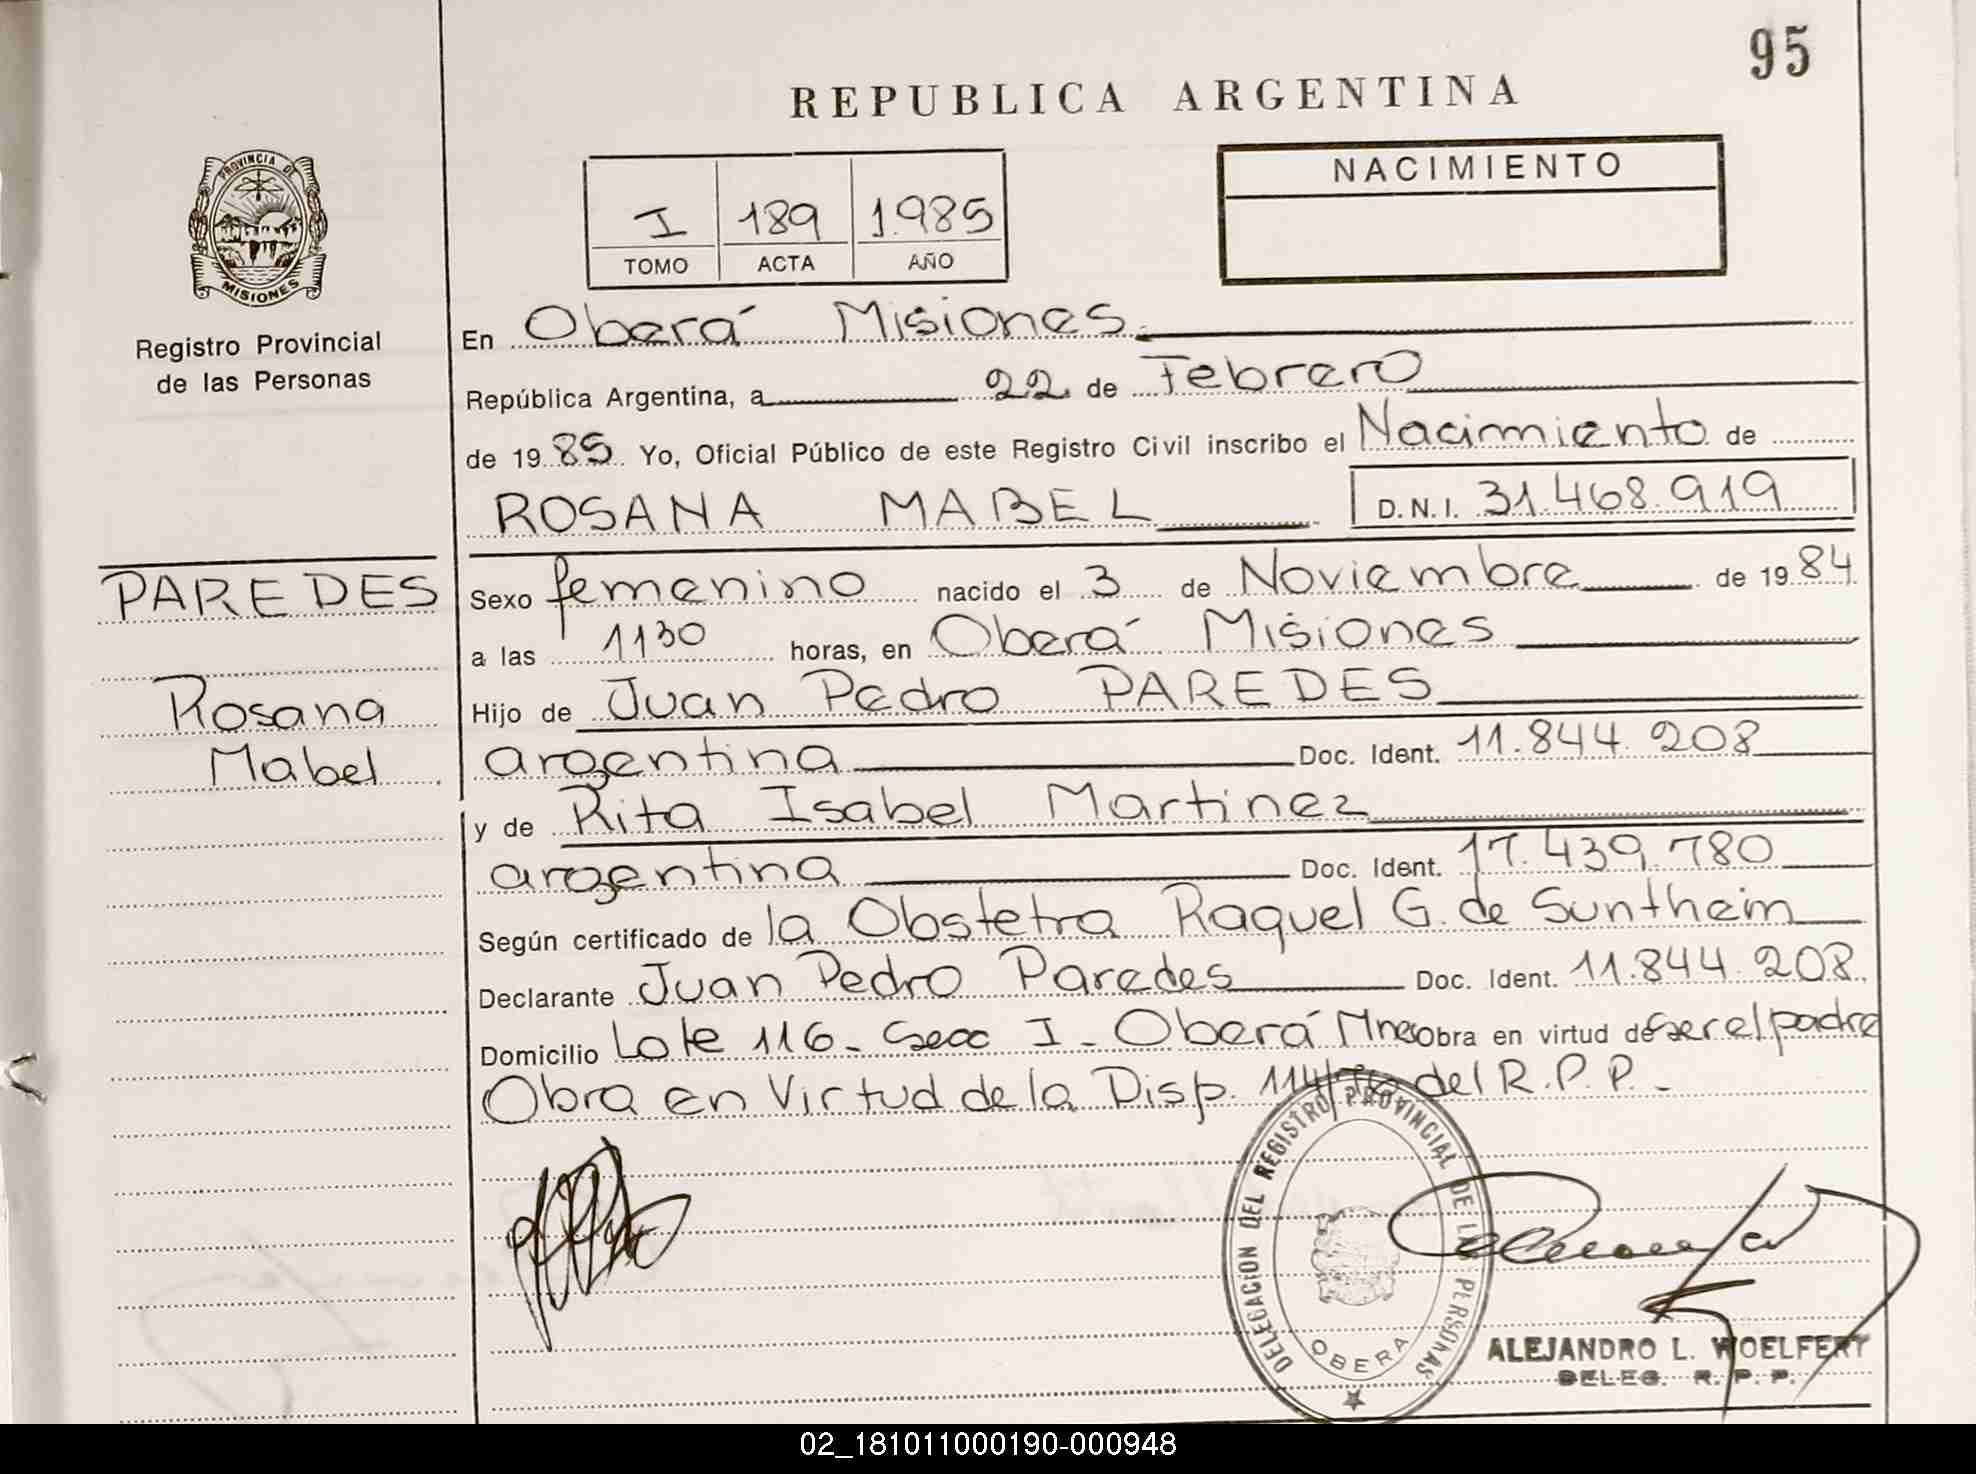 95
REPUBLICA ARGENTINA
PROVINCIA DE
MISIONES
Registro Provincial
de las Personas
I 189 1.985
TOMO ACTA AÑO
NACIMIENTO
En Oberá Misiones.
República Argentina, a 22 de Febrero
de 1985 Yo, Oficial Público de este Registro Civil inscribo el Nacimiento de
ROSANA MABEL D.N.I. 31.468.919
PAREDES
Rosana
Mabel
Sexo femenino nacido el 3 de Noviembre de 1984
a las 1130 horas, en Oberá Misiones
Hijo de Juan Pedro PAREDES
argentina Doc. Ident. 11.844.208
y de Rita Isabel Martinez
argentina Doc. Ident. 17.439.780
Según certificado de la Obstetra Raquel G. de Suntheim
Declarante Juan Pedro Paredes Doc. Ident. 11.844.208.
Domicilio Lote 116- Secc I - Oberá Mnes Obra en virtud de Ser el padre
Obra en Virtud de la Disp. del R.P.P. -
DELEGACION DEL REGISTRO PROVINCIAL DE LAS PERSONAS
OBERA
ALEJANDRO L. WOELFERT
DELEG. R. P. P.
02_181011000190-000948